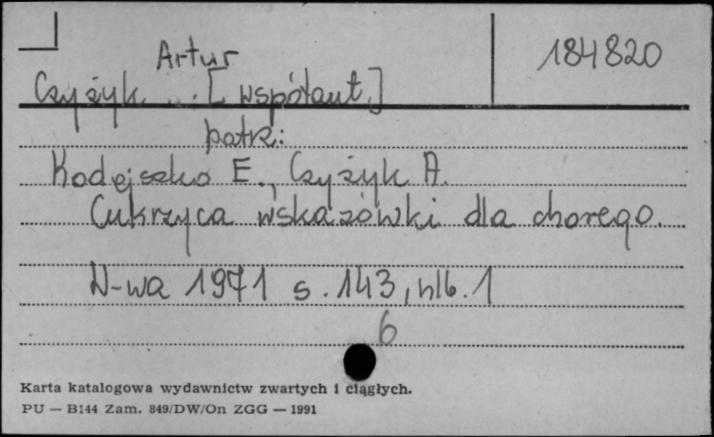 Artur
184820
Czyżyk [współaut.]
patrz:
Kodejszko E., Czyżyk A.
Cukrzyca wskazówki dla chorego.
W-wa 1971 s. 143, nlb. 1
6
Karta katalogowa wydawnictw zwartych i ciągłych.
PU — B144 Zam. 849/DW/On ZGG — 1991